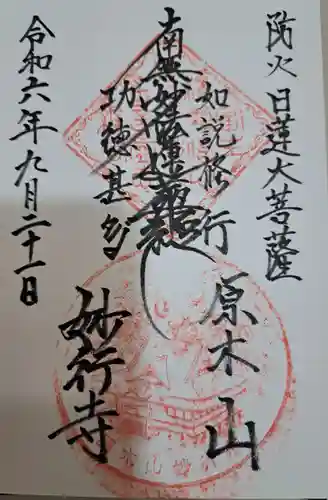 防火 日蓮大菩薩
如説修行
南無妙法蓮華経
功徳甚多
原木山
妙行寺
令和六年九月二十一日